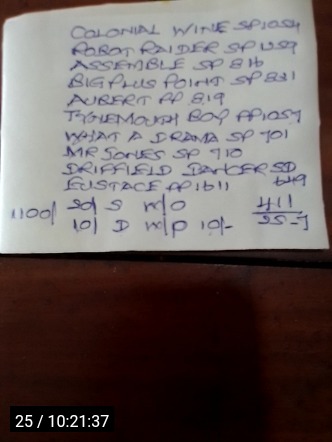 COLONIAL WINE SP 1054
ROBOT RAIDER SP 1259
ASSEMBLE SP 816
BIG PLUS POINT SP 821
AUBERT PP 819
TYNEMOUTH BOY PP 1057
WHAT A DRAMA SP 701
MR JONES SP 710
DRIFFIELD DANCER SP
EUSTACE PP 1611 649
1100/ 50/ S m/o 411
10/ D m/p 10/- 55-7
25 / 10:21:37